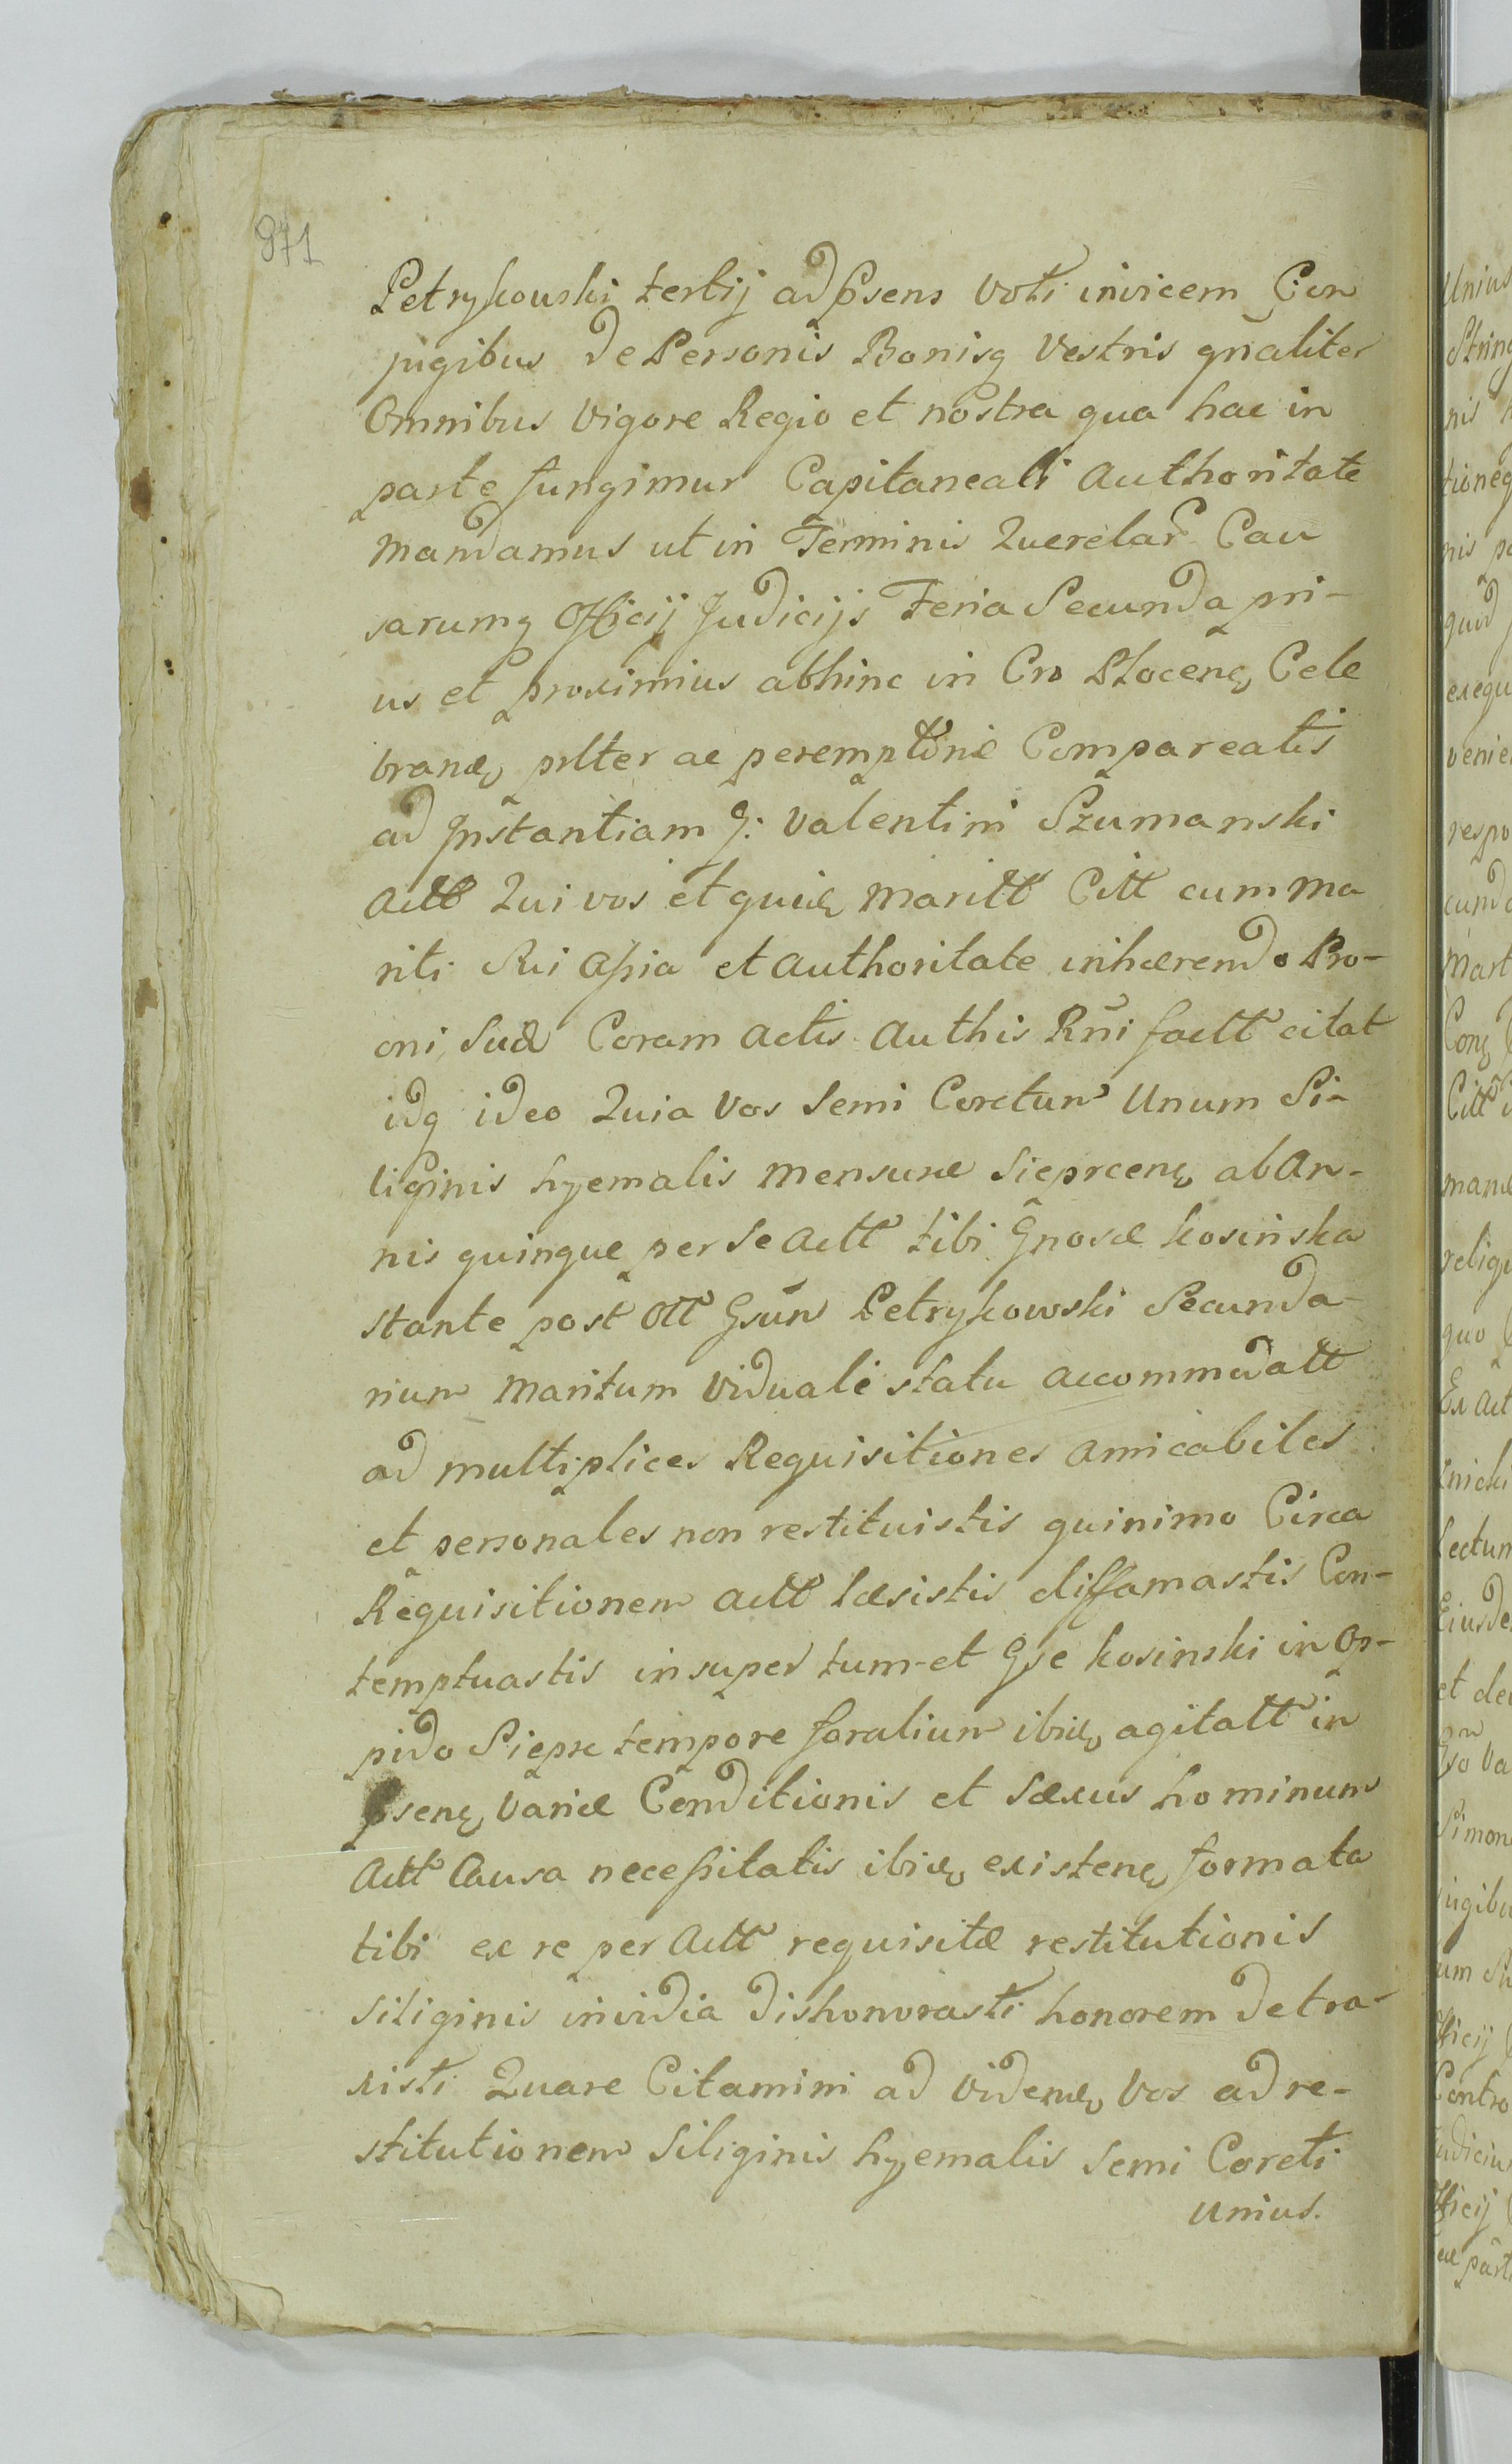 871
Petrykowski tertij ad Psens Voti invicem Con
jugibus de Personis Bonisq Vestris gnaliter
Omnibus Vigore Regio et nostra qua hac in
parte fungimur Capitaneali Authoritate
Mandamus ut in Terminis Querelar Cau
sarumq Officij Judicijs Feria Secunda pri-
us et proximius abhinc in Cro Plocen Cele
bran plter ac peremptorie Compareatis
ad Instantiam G: Valentini Szumanski
Actt Qui vos et quid Maritt Citt cum Ma
riti Sui Assia et Authoritate inhærendo Pro-
oni Suæ Coram Actis Authis Rni factt citat
idq ideo Quia Vos Semi Coretum Unum Si-
liginis hyemalis Mensuræ Sieprcen ab An-
nis quinque per Se Actt tibi Gnosæ Kosinska
stante post Ott Gsun Petrykowski Secunda-
rium Maritum Viduali statu accommodatt
ad multiplices Requisitiones amicabiles
et personales non restituistis quinimo Circa
Requisitionem Actt læsistis diffamastis Con-
temptuastis insuper tum et Gse Kosinski in Op-
pido Sieprc tempore foralium ibid agitatt in
Psen Variæ Conditionis et Sæxus hominum
Actt Causa necessitatis ibid existen formata
tibi ex re per Actt requisitæ restitutionis
Siliginis invidia dishonorasti honorem detra-
xisti Quare Citamini ad Viden Vos ad re-
stitutionem Siliginis hyemalis Semi Coreti
Unius.